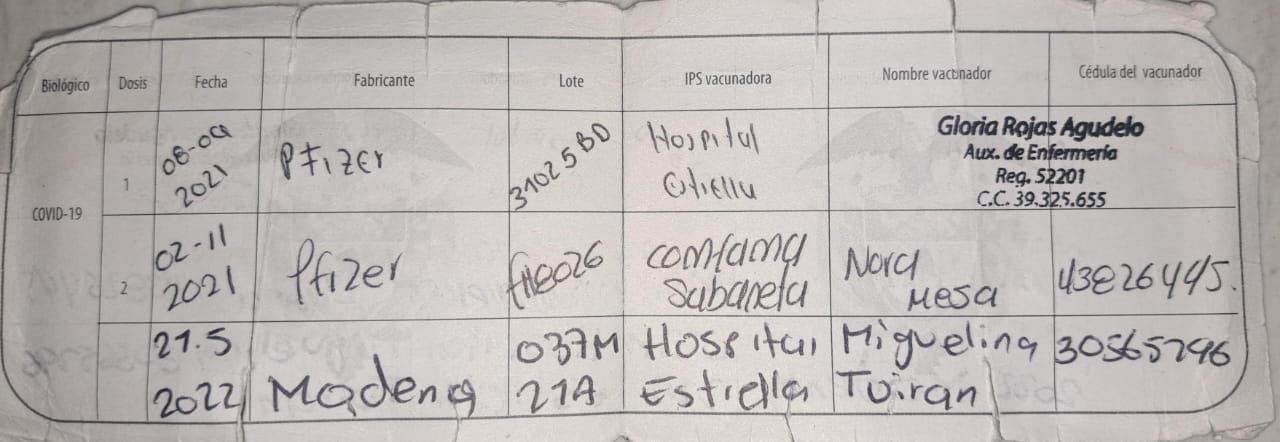 Biológico Dosis Fecha Fabricante Lote IPS vacunadora Nombre vacunador Cédula del vacunador
COVID-19
1 08-09 2021 Pfizer 31025BD Hospital
Gloria Rojas Agudelo
Aux. de Enfermería
Reg. 52201
C.C. 39.325.655
2 02-11 2021 Pfizer comfama Sabaneta Nora Mesa 43826445.
21.5 037M Hospital Miguelina 30565296
2022 Moderna 21A Estrella Toiran